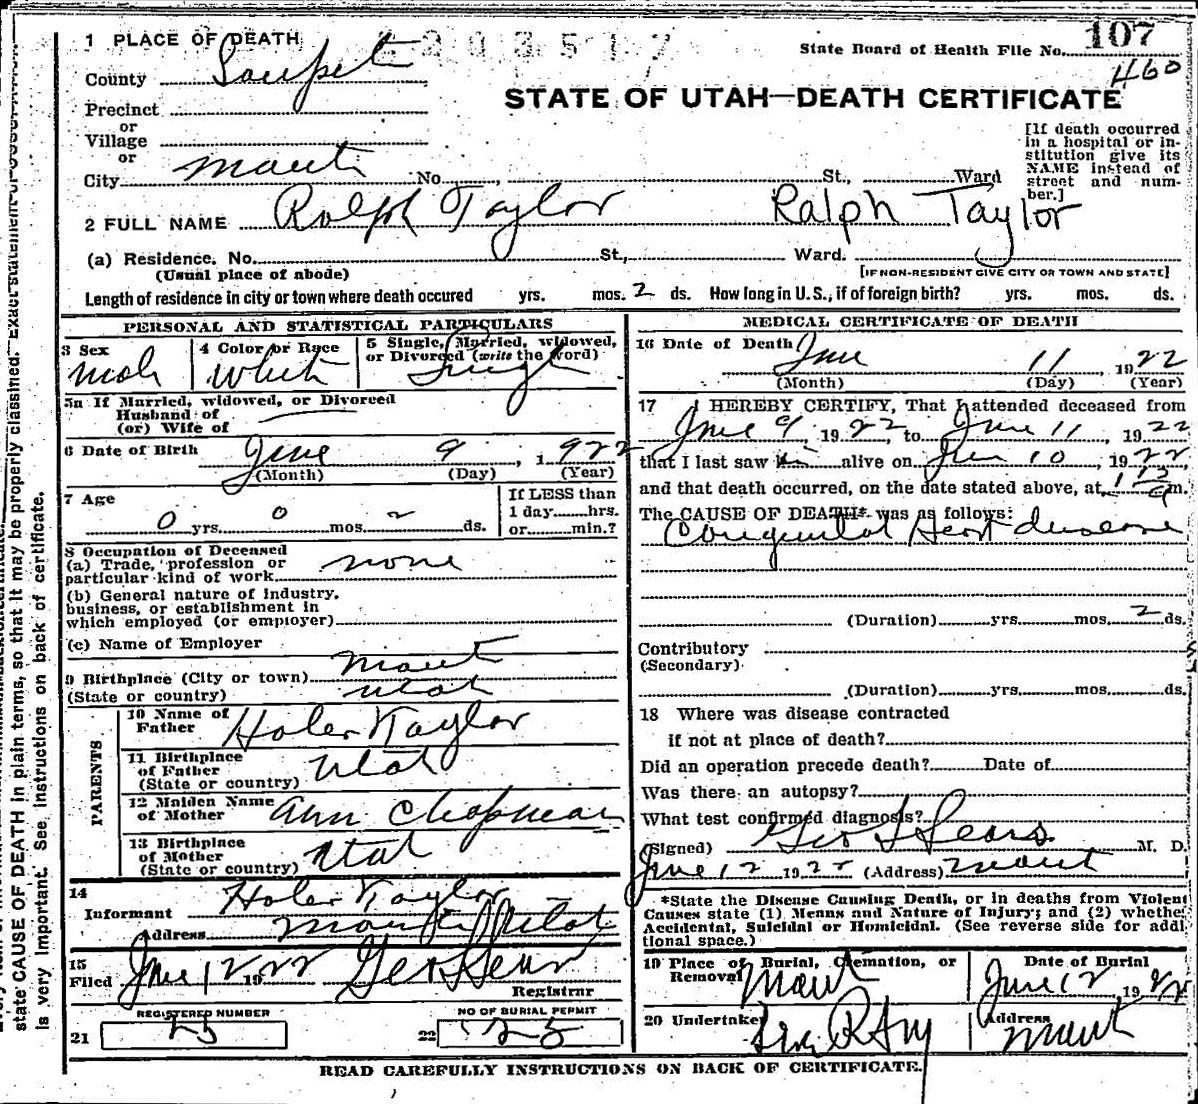 1 PLACE OF DEATH
State Board of Health File No. 107
460
County Sanpete
STATE OF UTAH—DEATH CERTIFICATE
Precinct
or
Village
or
City Manti No. St., Ward
[If death occurred in a hospital or in-
stitution give its
NAME instead of
street and num-
ber.]
2 FULL NAME Ralph Taylor Ralph Taylor
(a) Residence. No. St., Ward.
(Usual place of abode) [IF NON-RESIDENT GIVE CITY OR TOWN AND STATE]
Length of residence in city or town where death occured yrs. mos. 2 ds. How long in U.S., if of foreign birth? yrs. mos. ds.
PERSONAL AND STATISTICAL PARTICULARS
3 Sex Male
4 Color or Race White
5 Single, Married, widowed,
or Divorced (write the word) Single
5a If Married, widowed, or Divorced
Husband of
(or) Wife of
6 Date of Birth June 9, 1922
(Month) (Day) (Year)
7 Age 0 yrs. 0 mos. 2 ds.
If LESS than
1 day hrs.
or min.?
8 Occupation of Deceased
(a) Trade, profession or
particular kind of work none
(b) General nature of Industry,
business, or establishment in
which employed (or employer)
(c) Name of Employer
9 Birthplace (City or town) Manti
(State or country) Utah
PARENTS
10 Name of
Father Taylor
11 Birthplace
of Father
(State or country) Utah
12 Maiden Name
of Mother Ann Chapman
13 Birthplace
of Mother
(State or country) Utah
14
Informant Taylor
Address Manti Utah
15
Filed June 12 1922 Geo Sears
Registrar
REGISTERED NUMBER
21 25
NO OF BURIAL PERMIT
22 25
MEDICAL CERTIFICATE OF DEATH
16 Date of Death June 11 1922
(Month) (Day) (Year)
17 I HEREBY CERTIFY, That I attended deceased from
June 9, 1922, to June 11, 1922
that I last saw alive on Jun 10, 1922
and that death occurred, on the date stated above, at m.
The CAUSE OF DEATH* was as follows:
Congenital Heart disease
(Duration) yrs. mos. 2 ds.
Contributory
(Secondary)
(Duration) yrs. mos. ds.
18 Where was disease contracted
if not at place of death?
Did an operation precede death? Date of
Was there an autopsy?
What test confirmed diagnosis?
(Signed) Geo Sears M. D.
June 12 1922 (Address) Manti
*State the Disease Causing Death, or in deaths from Violent
Causes state (1) Means and Nature of Injury; and (2) whether
Accidental, Suicidal or Homicidal. (See reverse side for addi
tional space.)
19 Place of Burial, Cremation, or
Removal Manti
Date of Burial
June 12, 1922
20 Undertaker
Address
Manti
READ CAREFULLY INSTRUCTIONS ON BACK OF CERTIFICATE.
state CAUSE OF DEATH in plain terms, so that it may be properly classified. Exact statement of
is very important. See instructions on back of certificate.